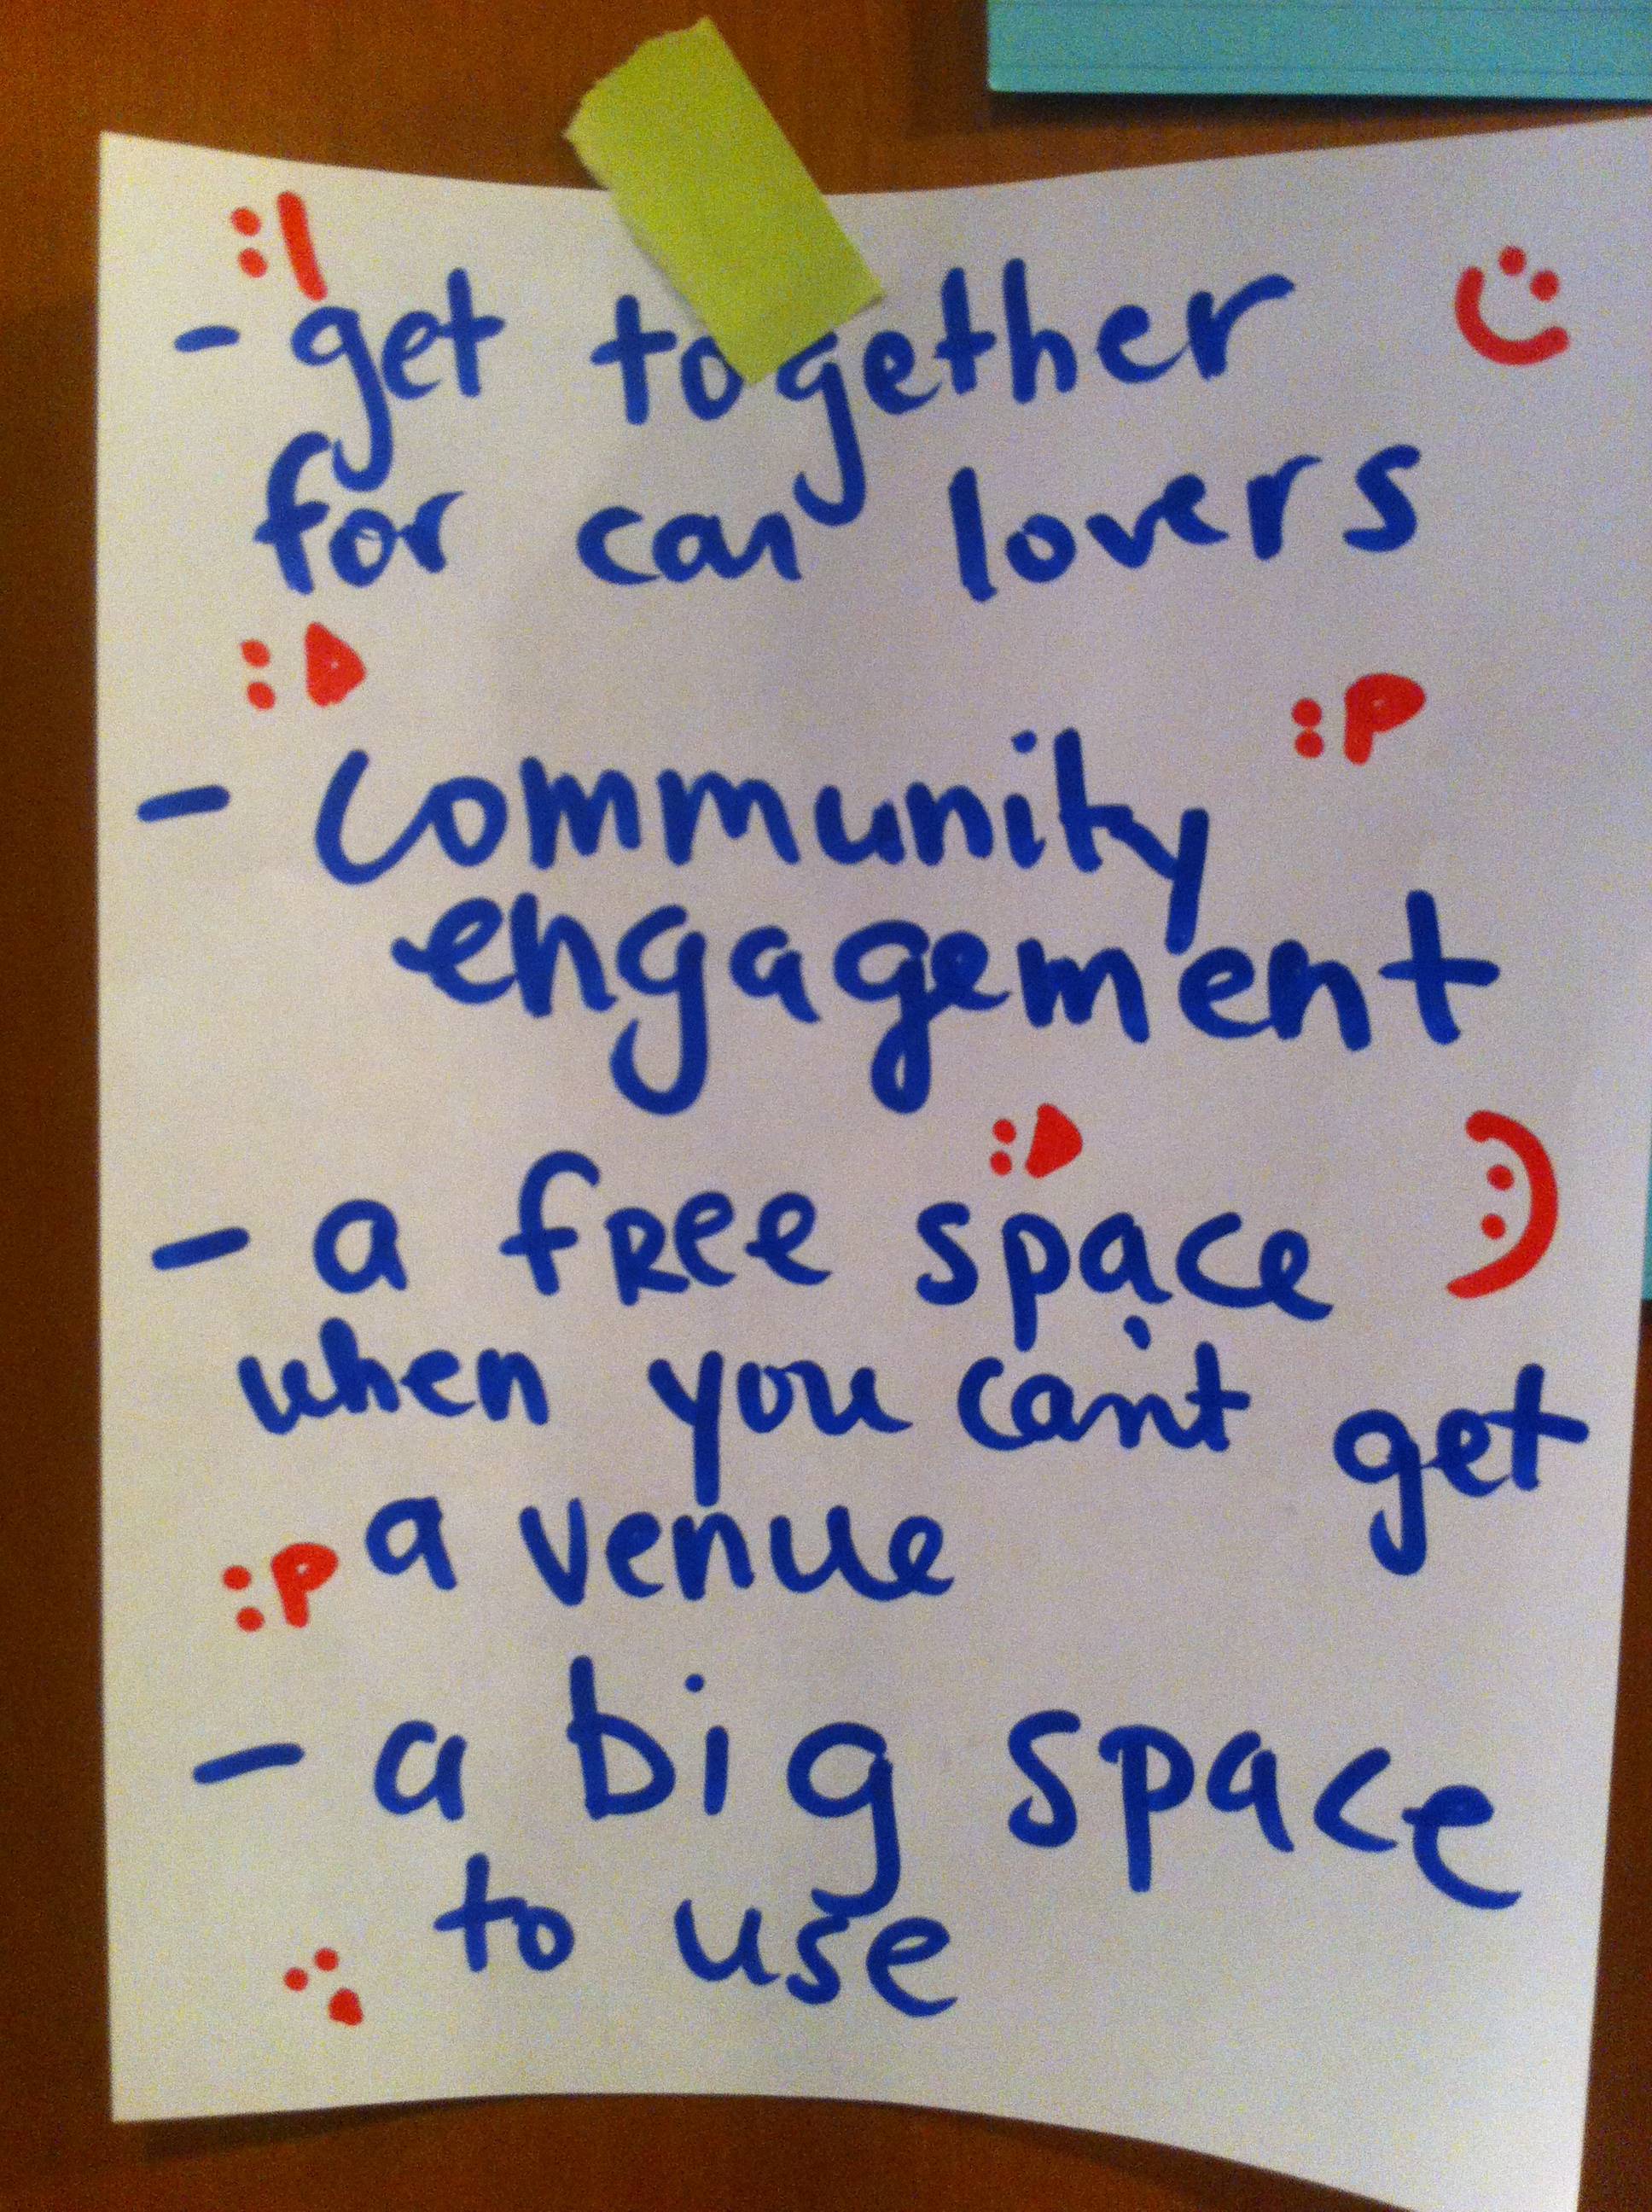 :|
- get together
for car lovers
:D
:P
- Community
engagement
:D
- a fRee space
when you can't get
:P a venue
- a big space
to use